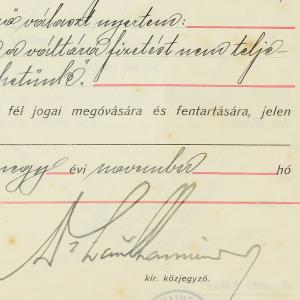 választ nyertem:
a váltóra fizetést nem telje
hetünk".
fél jogai megóvására és fentartására, jelen
négy évi november hó
kir. közjegyző.